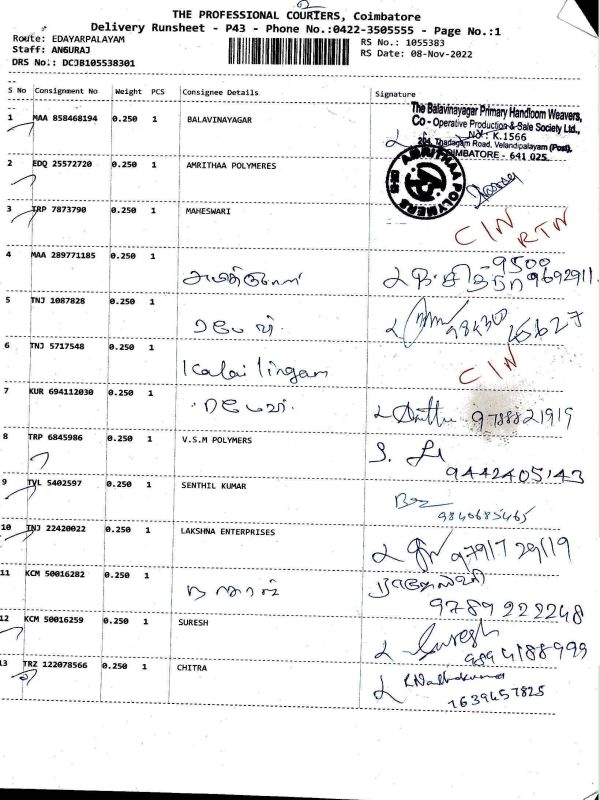 THE PROFESSIONAL COURIERS, Coimbatore
Delivery Runsheet - P43 - Phone No.:0422-3505555 - Page No.:1
Route: EDAYARPALAYAM RS No.: 1055383
Staff: ANGURAJ RS Date: 08-Nov-2022
DRS No.: DCJB105538301
S No Consignment No Weight PCS Consignee Details Signature
The Balavinayagar Primary Handloom Weavers,
Co - Operative Production & Sale Society Ltd.,
No: K.1566
204, Thadagam Road, Velandipalayam (Post),
COIMBATORE - 641 025.
1 MAA 858468194 0.250 1 BALAVINAYAGAR
2 EDQ 25572720 0.250 1 AMRITHAA POLYMERES
AMRITHAA POLYMERS
3 TRP 7873790 0.250 1 MAHESWARI C/N RTN
4 MAA 289771185 0.250 1
-9500
9692911
5 TNJ 1087828 0.250 1 ரமேஷ் 98430 45627
6 TNJ 5717548 0.250 1 Kalai lingam C/N
7 KUR 694112030 0.250 1 ரமேஷ் 9788821919
8 TRP 6845986 0.250 1 V.S.M POLYMERS 9442405143
9 TVL 5402597 0.250 1 SENTHIL KUMAR 9840685465
10 TNJ 22420022 0.250 1 LAKSHNA ENTERPRISES 97917 29119
11 KCM 50016282 0.250 1 9789222248
12 KCM 50016259 0.250 1 SURESH Suresh 9894188999
13 TRZ 122078566 0.250 1 CHITRA 7639457825